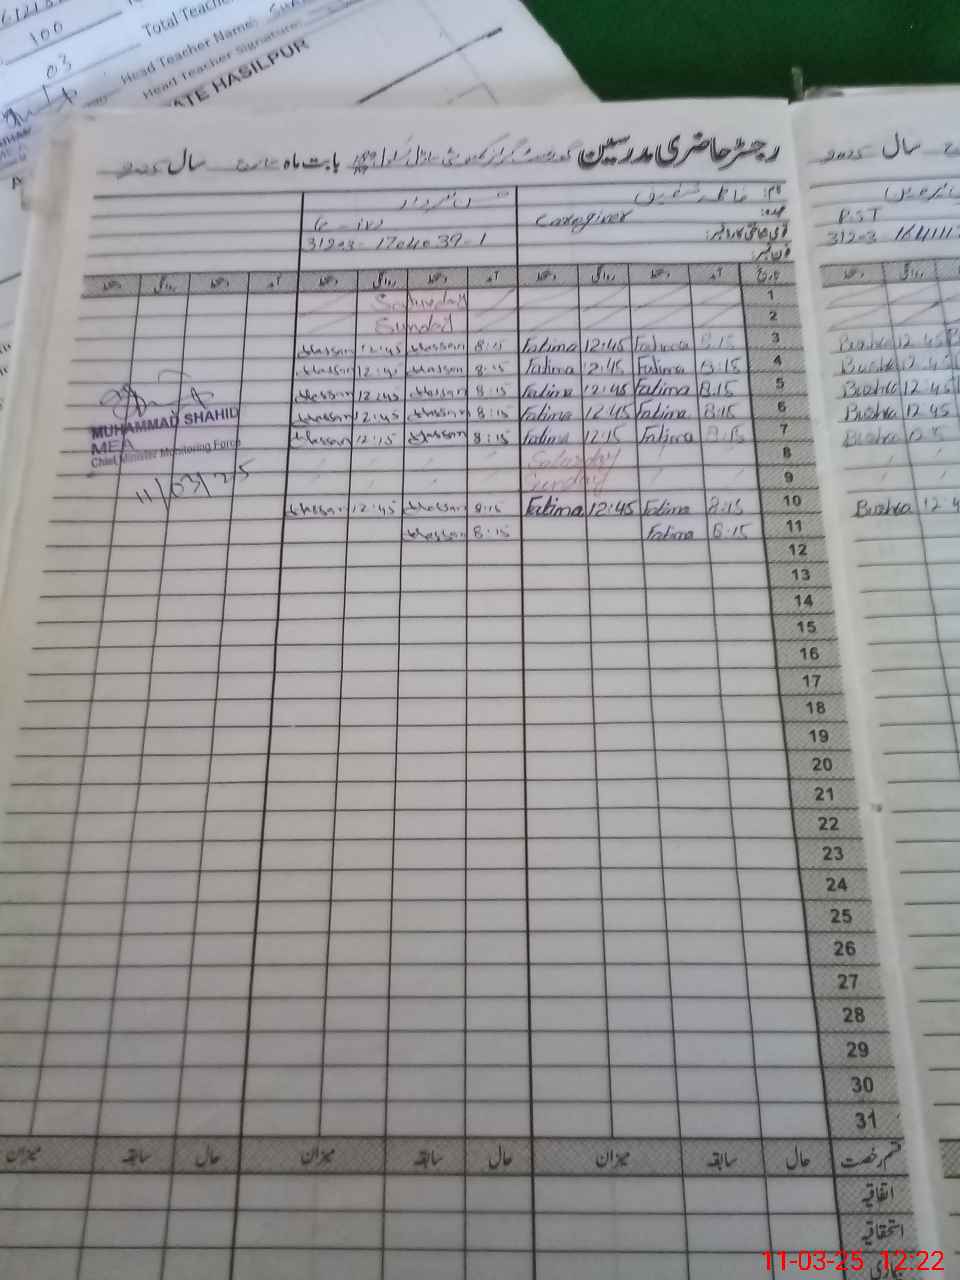 100
Total Teache
03
Head Teacher Name:
Head Teacher Signature:
ATE HASILPUR
رجسٹر حاضری مدرسین بابت ماہ مارچ سال 2025
نام:
عہدہ: Caregiver
قومی شناختی کارڈ نمبر: 31203-1704039-1
فون نمبر:
تاریخ آمد دستخط روانگی دستخط آمد دستخط روانگی دستخط آمد دستخط روانگی دستخط
1 Saturday
2 Sunday
3 8:15 Fatima 12:45 Fatima 8:15 Hassan 12:45 Hassan
4 8:15 Fatima 12:45 Fatima 8:15 Hassan 12:45 Hassan
5 8:15 Fatima 12:45 Fatima 8:15 Hassan 12:45 Hassan
6 8:15 Fatima 12:45 Fatima 8:15 Hassan 12:45 Hassan
7 8:15 Fatima 12:15 Fatima 8:15 Hassan 12:15 Hassan
8 Saturday
9 Sunday
10 8:15 Fatima 12:45 Fatima 8:15 Hassan 12:45 Hassan
11 8:15 Fatima 8:15 Hassan
12
13
14
15
16
17
18
19
20
21
22
23
24
25
26
27
28
29
30
31
قسم رخصت حال سابقہ میزان حال سابقہ میزان حال سابقہ میزان
اتفاقیہ
استحقاقیہ
MUHAMMAD SHAHID
MEA
Chief Minister Monitoring Force
11/03/25
سال 2025
PST
31203
Bushra 12 45
Bushra 12 45
Bushra 12 45
Bushra 12 45
Bushra
Bushra 12 4
11-03-25 12:22